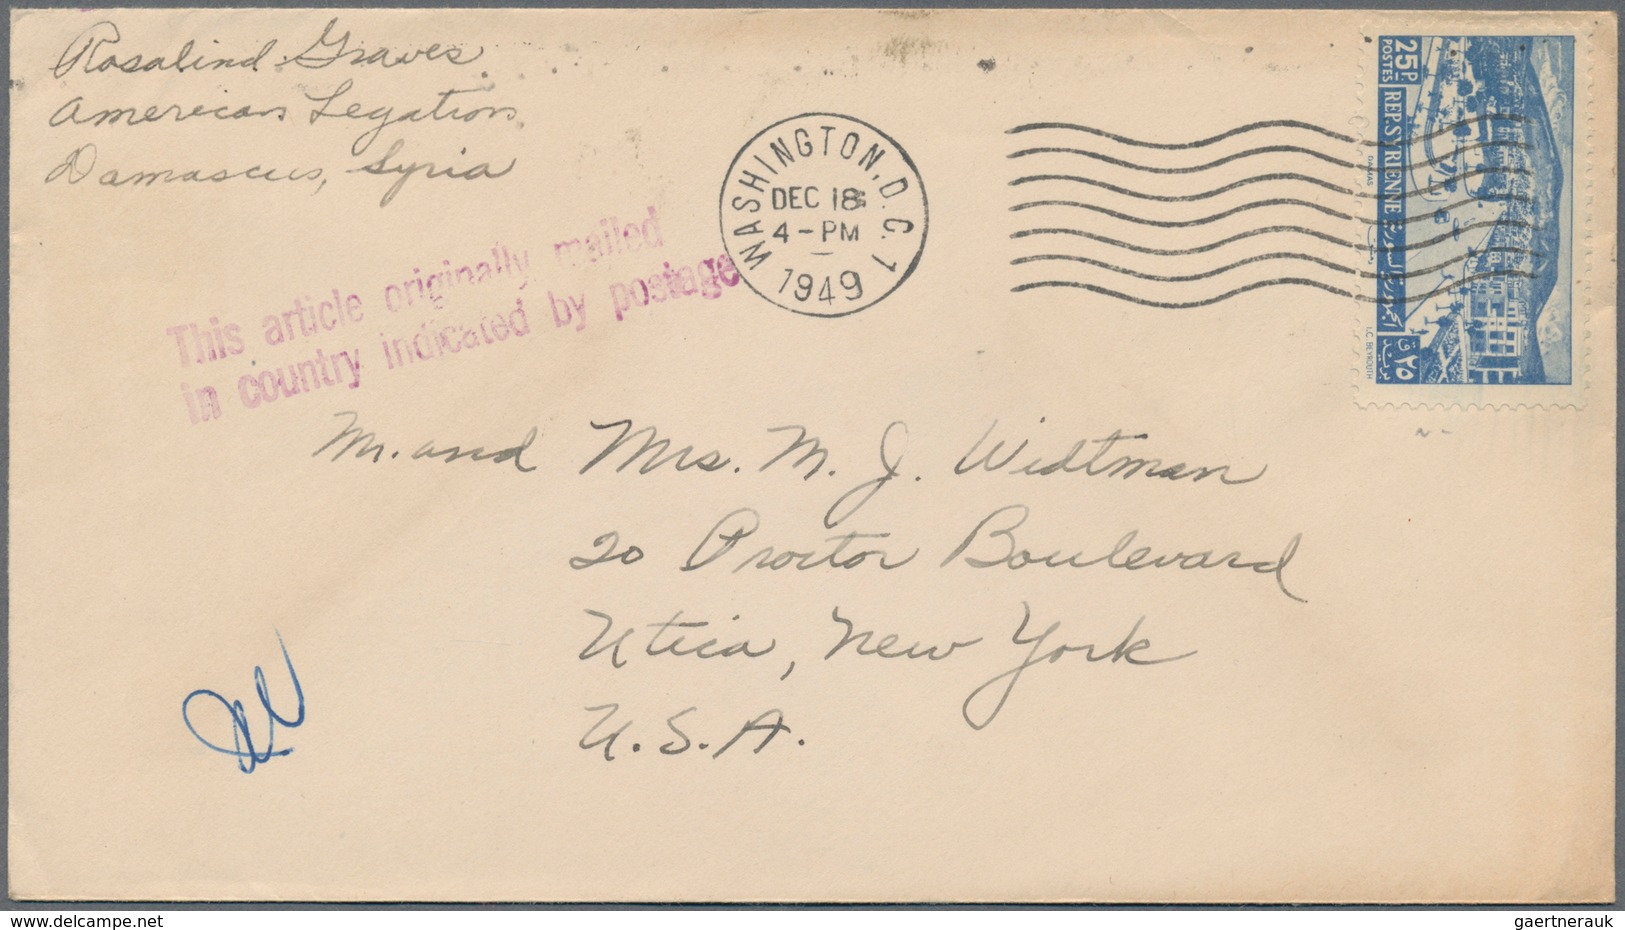 Rosalind Graves
American Legation
Damascus, Syria
WASHINGTON, D.C. 1
DEC 18
4-PM
1949
25P.
POSTES
REP. SYRIENNE
DAMAS
دمشق
الجمهورية السورية
I.C. BEYROUTH
٢٥ ق
بريد
This article originally mailed
in country indicated by postage
Mr. and Mrs. M. J. Widtman
20 Proctor Boulevard
Utica, New York
U.S.A.
www.delcampe.net
gaertnerauk